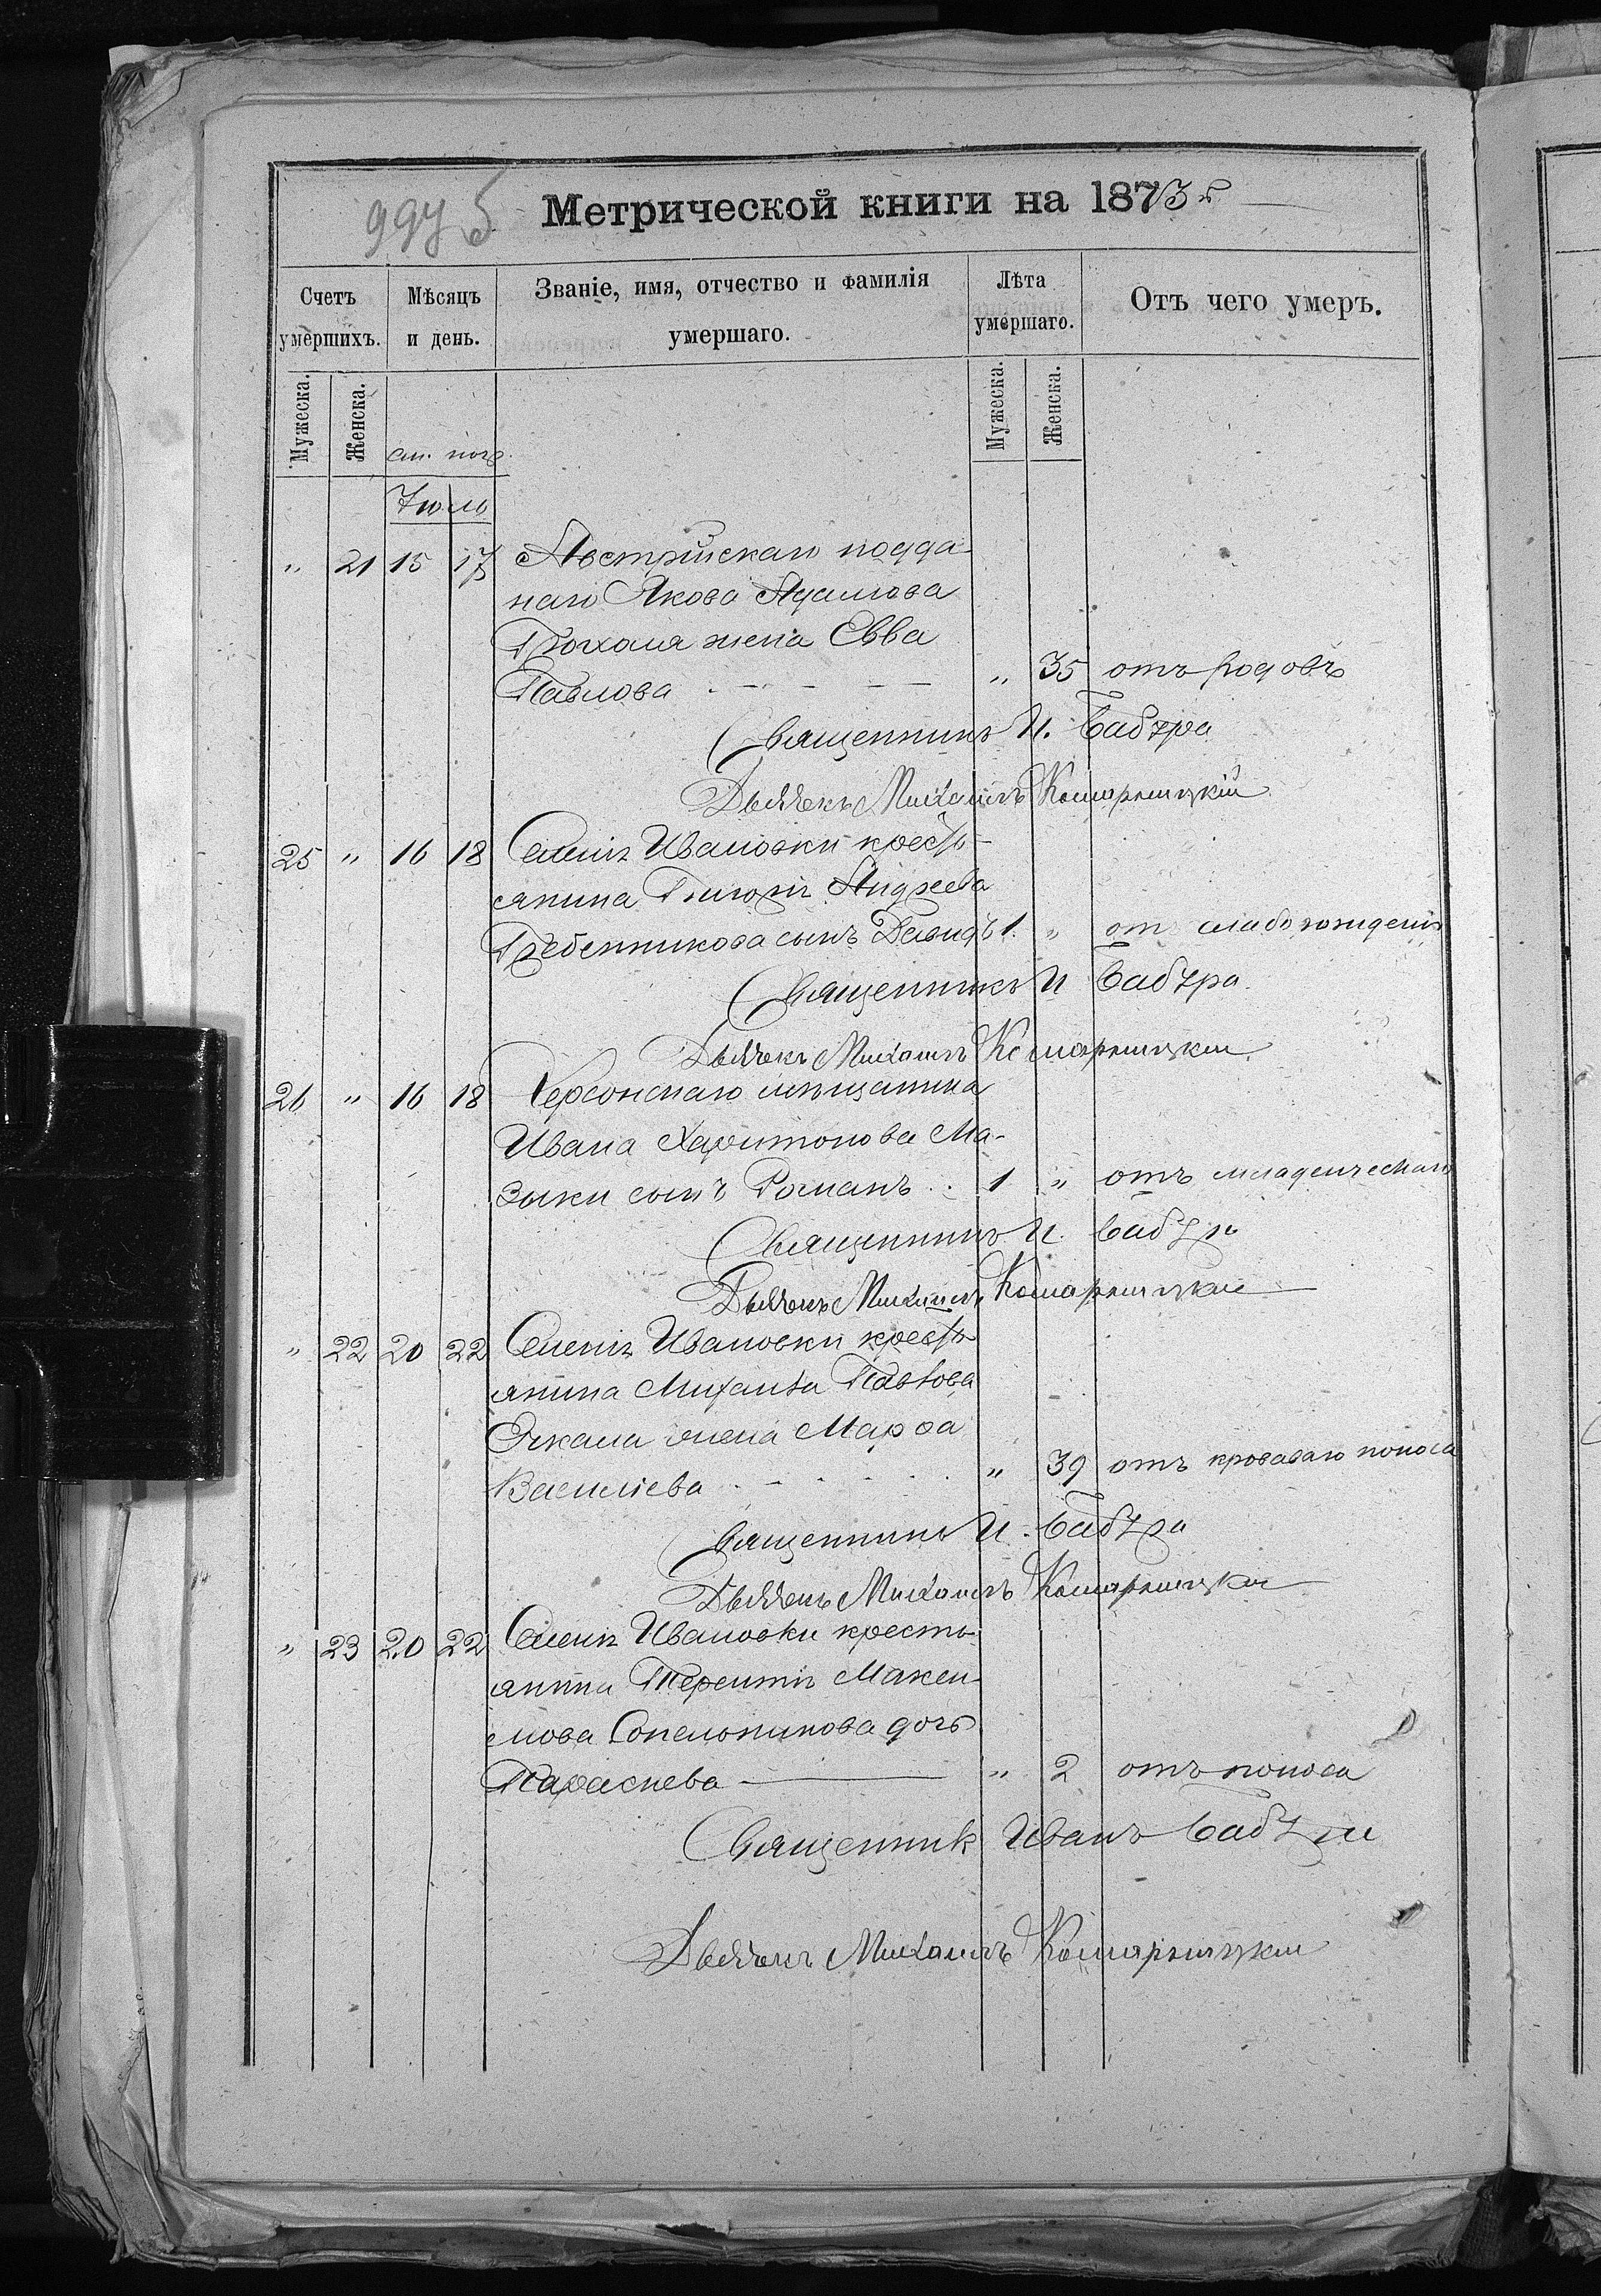 Метрической книги на 1873 г.
Счетъ умершихъ.
Мѣсяцъ и день.
Званіе, имя, отчество и фамилія умершаго.
Лѣта умершаго.
Отъ чего умеръ.
Мужеска. Женска. см. погр. Мужеска. Женска.
Іюль
" 21 15 17 Австрійскаго подда-
наго Якова Адамова
жена Евва
Павлова " 35 отъ родовъ
Священникъ И. Бабура
Дьячекъ Михаилъ Комарницкій
25 " 16 18 Селенія Ивановки кресть-
янина Григорія Андреева
Гребенникова сынъ Давидъ 1. " отъ слаборожденія
Священникъ И Бабура.
Дьячекъ Михаилъ Комарницкій
26 " 16 18 Херсонскаго мѣщанина
Ивана Харитонова Ма-
зыки сынъ Романъ 1 " отъ младенческаго
Священникъ И. Бабура
Дьячекъ Михаилъ Комарницкій
" 22 20 22 Селенія Ивановки кресть-
янина Михаила Павлова
жена Марфа
Василіева " 39 отъ кроваваго поноса
Священникъ И. Бабура
Дьячекъ Михаилъ Комарницкій
" 23 20 22 Селенія Ивановки кресть-
янина Терентія Макси-
мова Сопельникова дочь
Параскева " 2 отъ поноса
Священник Иванъ Бабура
Дьячекъ Михаилъ Комарницкій